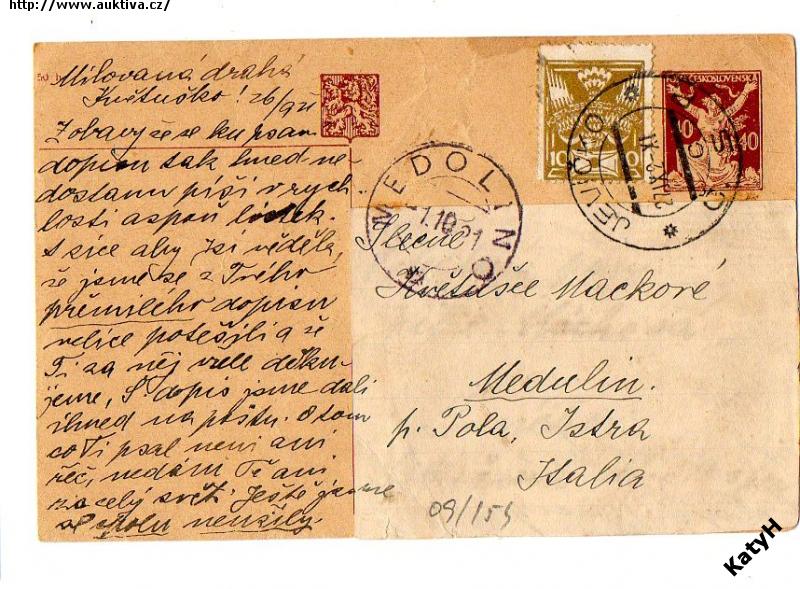 http://www.auktiva.cz/
Milovaná drahá
Květuško! 26/9 21
že se ku psaní
dopisu tak hned ne-
dostanu píši v rych-
losti aspoň lístek.
A sice aby jsi věděla,
že jsme se z Tvého
přemilého dopisu
velice potěšili a že
Ti za něj vřele děku-
jeme, dopis jsme dali
ihned na poštu. O tom
co Ti psal není ani
řeč, nedám Tě ani
za celý svět. Ještě jsme
neužily.
ČESKOSLOVENSKÁ
40 40
10
JEVÍČKO
ČSR
MEDOLINO
1.10.21
Slečně
Květušce Mackové
Medulin.
p. Pola, Istra
Italia
09/154
KatyH